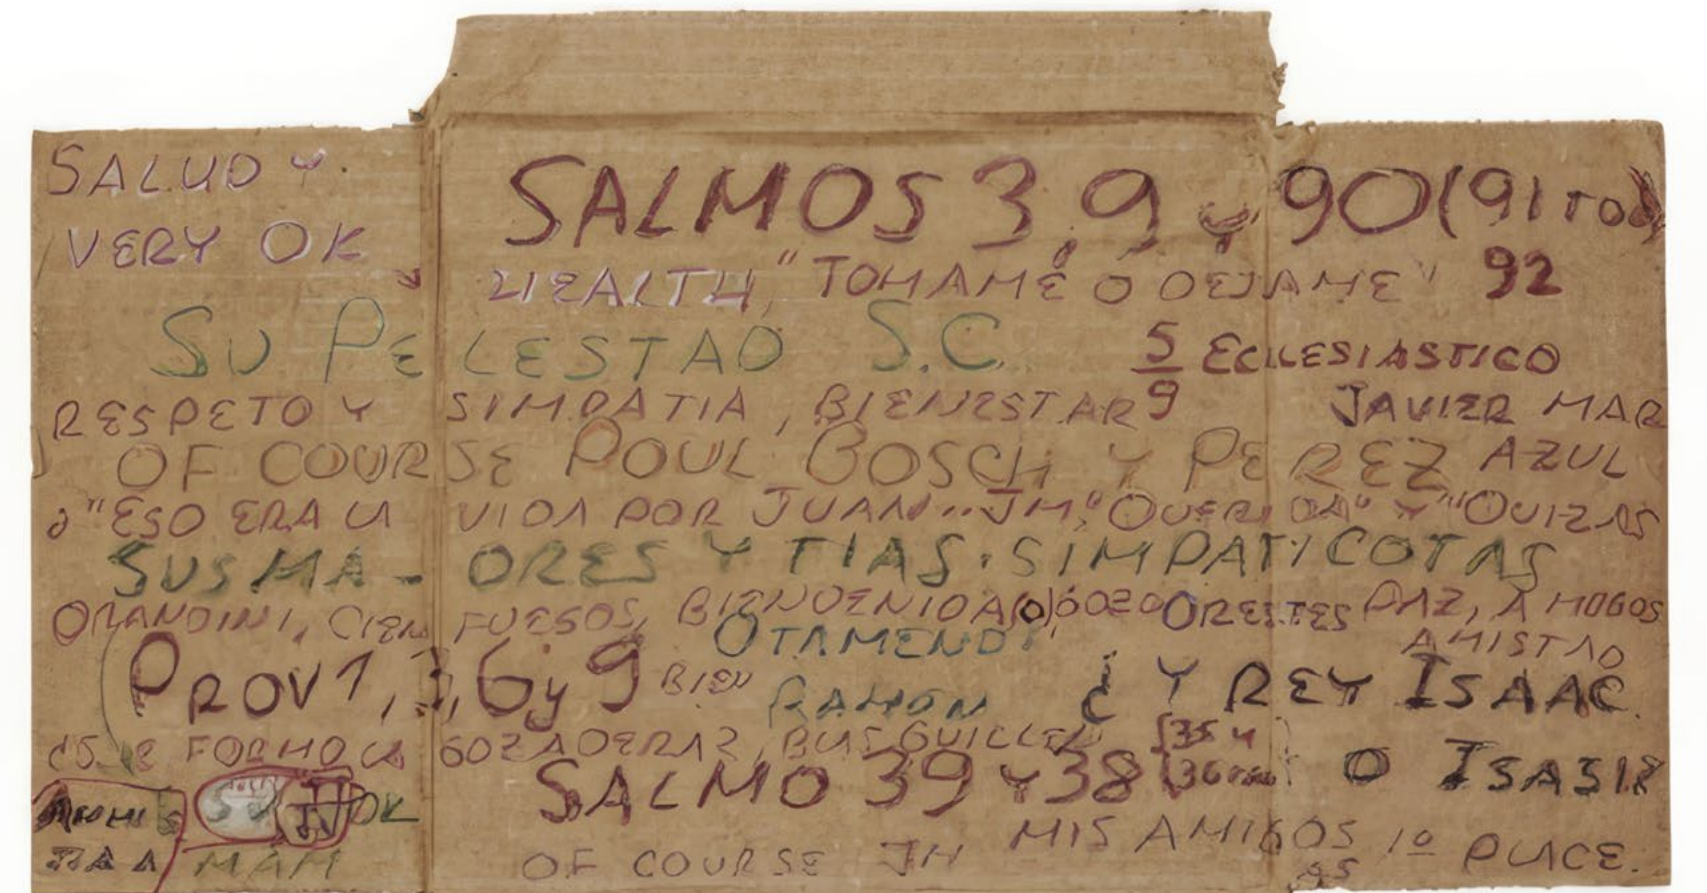 SALUD Y
VERY OK
SALMOS 3, 9 y 90 (91 TOD
HEALTH, "TOMAME O DEJAME" 92
SU PELESTAD S.C. 5/9 ECLLESIASTICO
RESPETO Y SIMPATIA, BIENESTAR JAVIER MAR
OF COURSE POUL BOSCH Y PEREZ AZUL
"ESO ERA LA VIDA POR JUAN... JM, "QUERIDA" Y "QUIZAS
SUS MA- ORES Y TIAS. SIMPATICOTAS
ORANDINI, CIEN FUEGOS, BIENVENIDA(O), GOZO ORESTES PAZ, AMOGOS
OTAMENDI AMISTAD
PROV 1, 3, 6 y 9 BIEN RAMON ¿Y REY ISAAC
FORMO LA GOZADERA?, BLAS GUILLEN (35 Y
SALMO 39 Y 38 (36 O ISASIR
OK
MAM OF COURSE JM MIS AMIGOS 1º PLACE.
AS